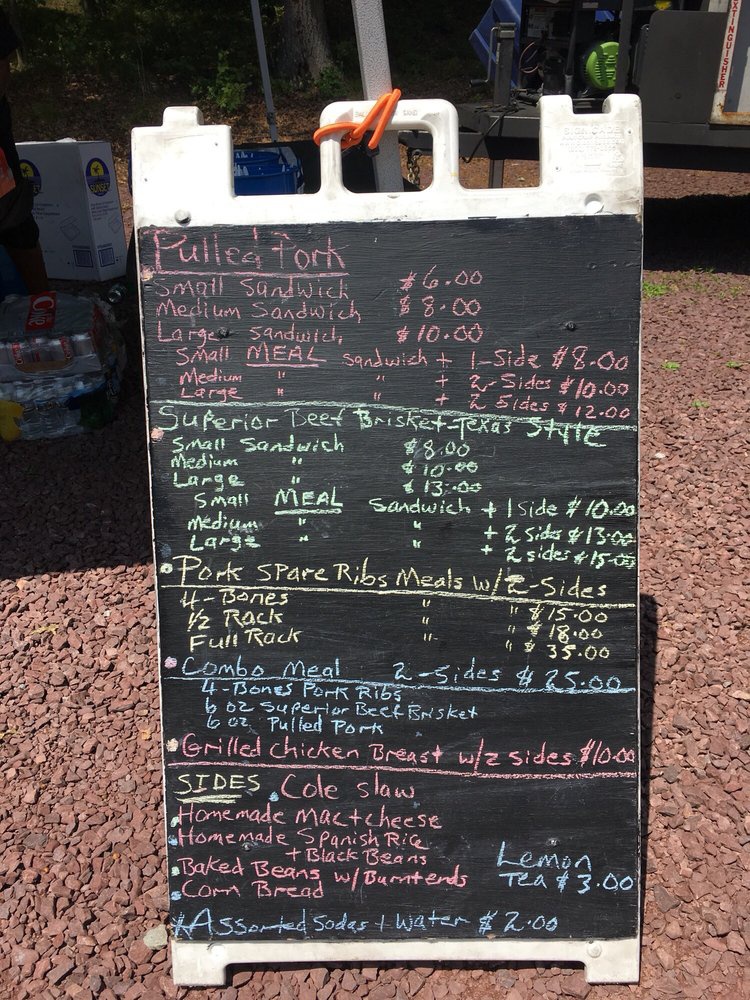 EXTINGUISHER
SUNSET
Coke
Pulled Pork
Small Sandwich $6.00
Medium Sandwich $8.00
Large Sandwich $10.00
Small MEAL Sandwich + 1-Side $8.00
Medium " " + 2-Sides $10.00
Large " " + 2 Sides $12.00
Superior Beef Brisket-Texas STYLE
Small Sandwich $8.00
Medium " $10.00
Large " $13.00
Small MEAL Sandwich + 1 Side $10.00
Medium " " + 2 Sides $13.00
Large " " + 2 sides $15.00
Pork Spare Ribs Meals w/ 2-Sides
4-Bones " " $15.00
1/2 Rack " $18.00
Full Rack " " $35.00
Combo Meal 2-Sides $25.00
4-Bones Pork Ribs
6 oz Superior Beef Brisket
6 oz Pulled Pork
Grilled Chicken Breast w/2 Sides $10.00
SIDES Cole slaw
Homemade Mac+cheese
Homemade Spanish Rice
+ Black Beans
Baked Beans w/Burntends
Corn Bread
Lemon
Tea $3.00
Assorted Sodas + Water $2.00